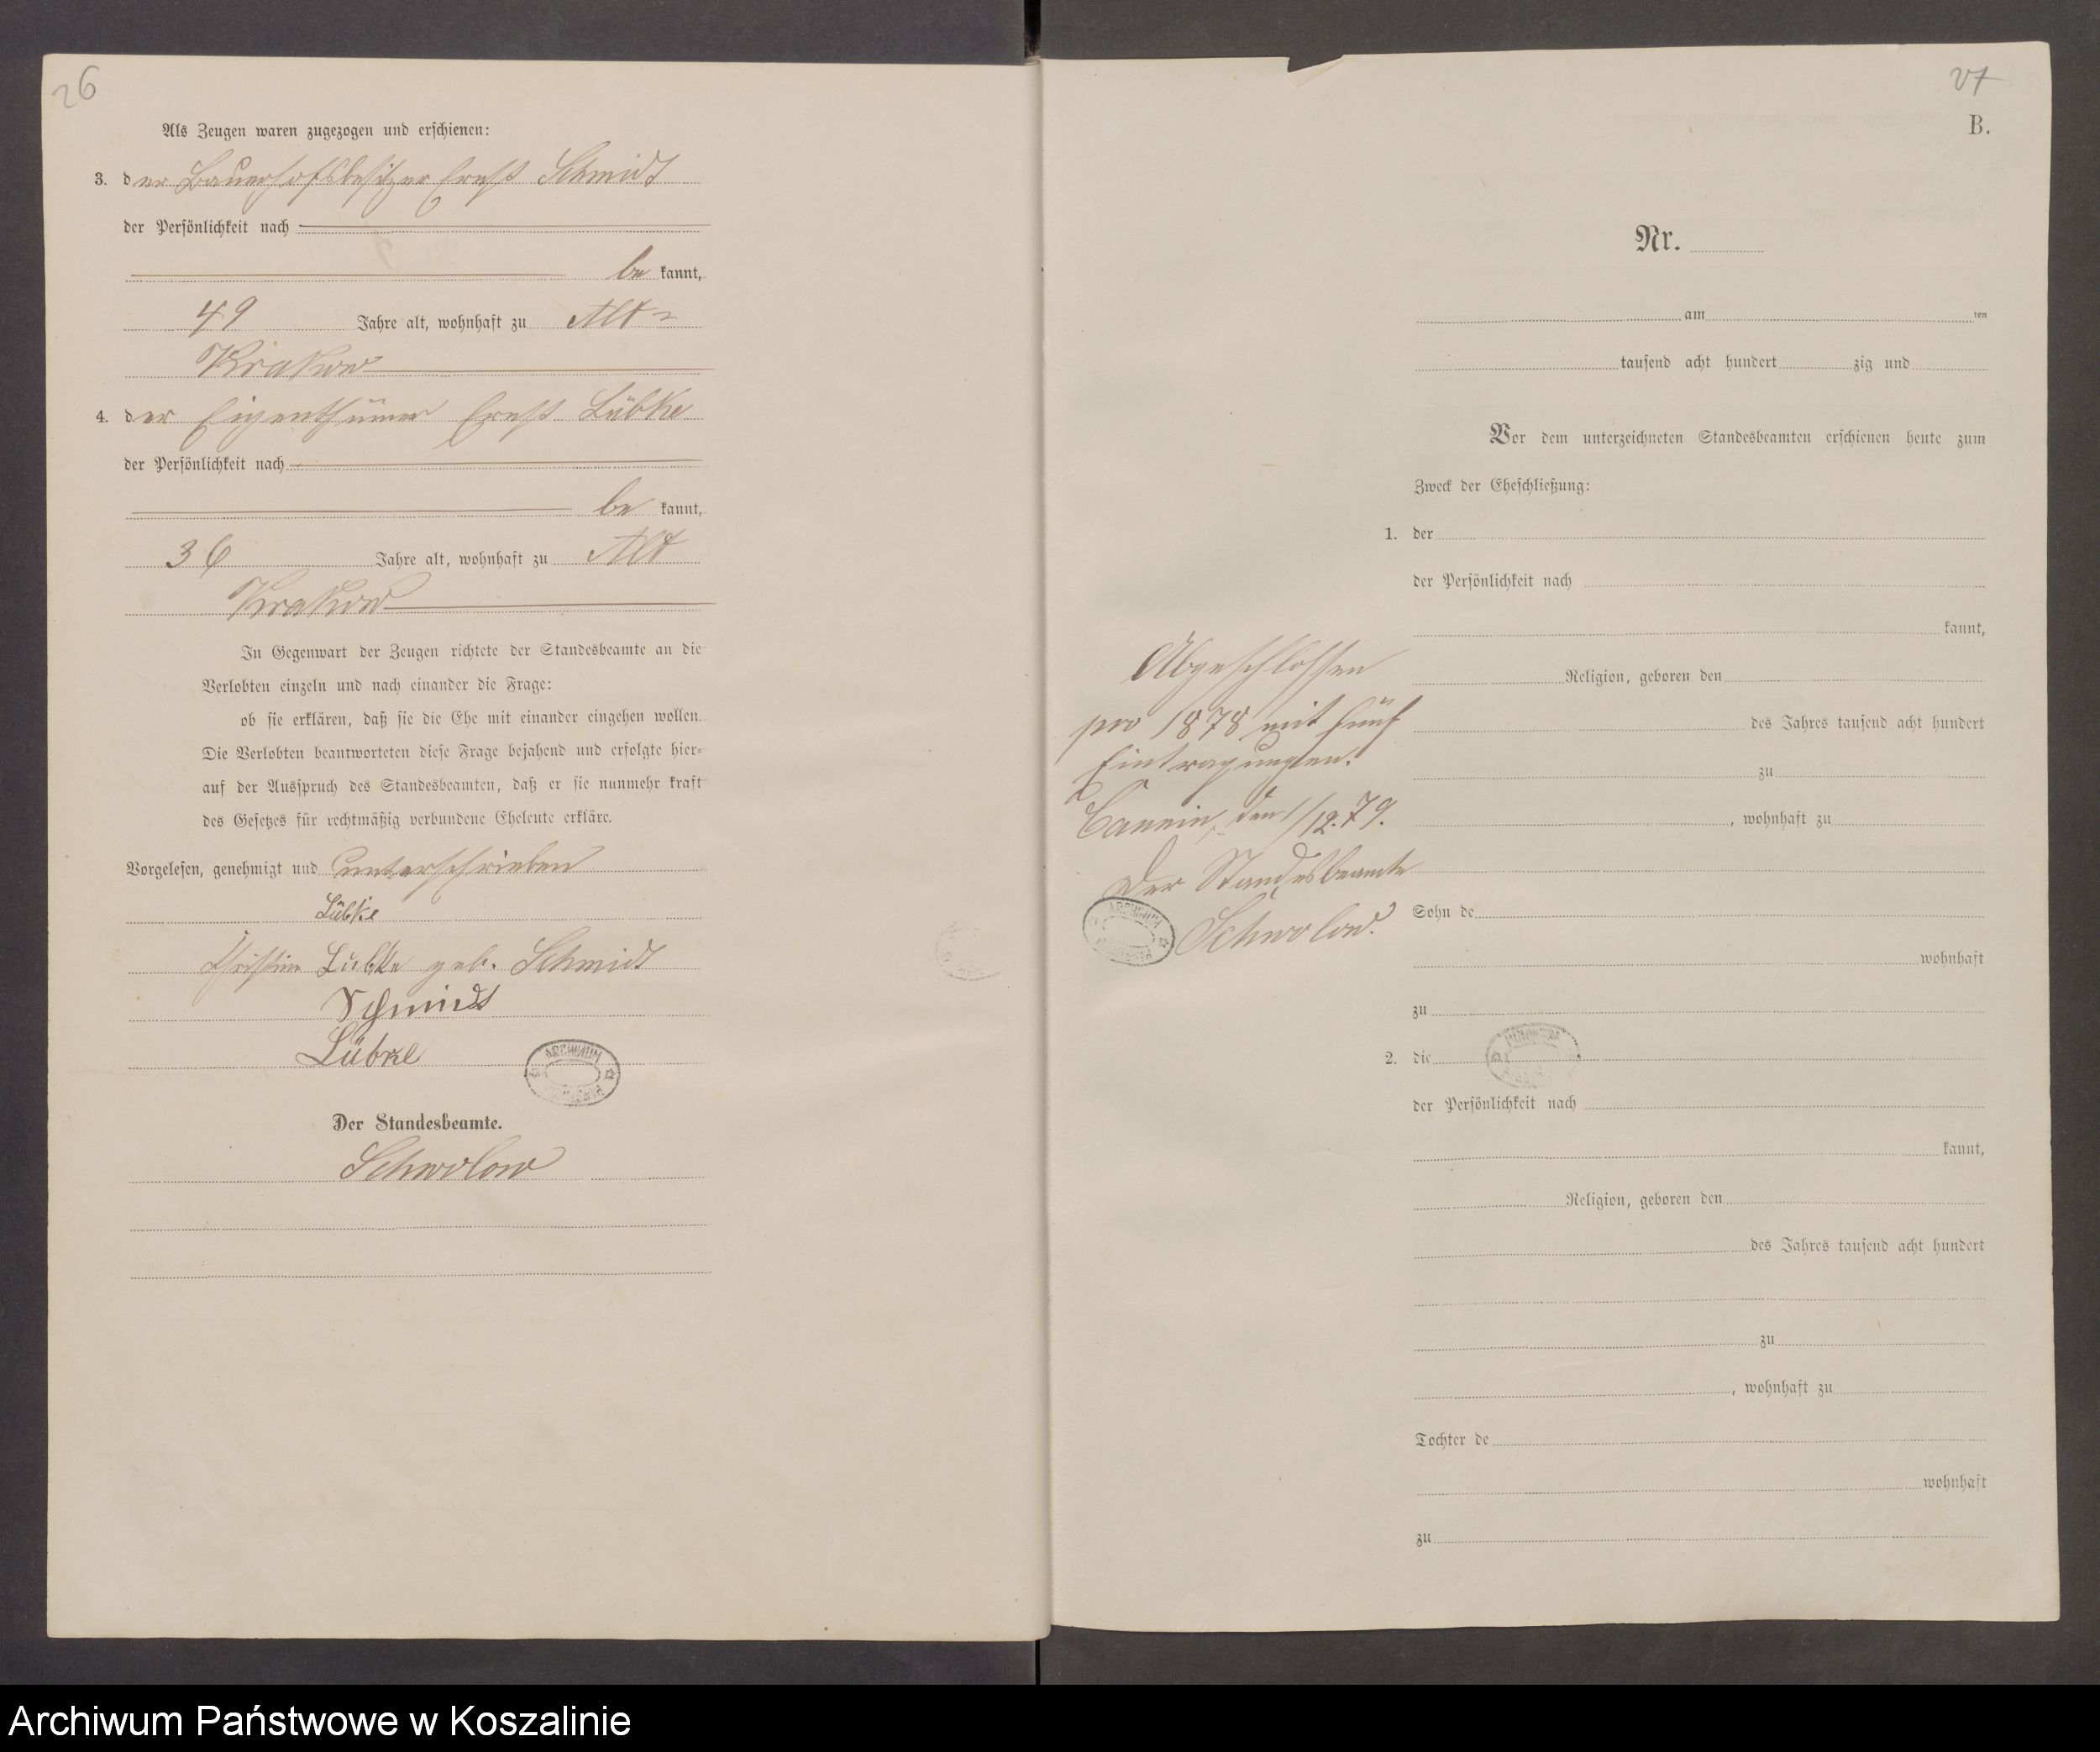 26
Als Zeugen waren zugezogen und erschienen:
3. der Bauerhofsbesitzer Ernst Schmidt
der Persönlichkeit nach
be kannt,
49 Jahre alt, wohnhaft zu Alt-
Krakow
4. der Eigenthümer Ernst Lübke
der Persönlichkeit nach
be kannt,
36 Jahre alt, wohnhaft zu Alt
Krakow
In Gegenwart der Zeugen richtete der Standesbeamte an die
Verlobten einzeln und nach einander die Frage:
ob sie erklären, daß sie die Ehe mit einander eingehen wollen.
Die Verlobten beantworteten diese Frage bejahend und erfolgte hier-
auf der Ausspruch des Standesbeamten, daß er sie nunmehr kraft
des Gesetzes für rechtmäßig verbundene Eheleute erkläre.
Vorgelesen, genehmigt und unterschrieben
Lübke
Christine Lübke geb. Schmidt
Schmidt
Lübke
ARCHIWUM
Der Standesbeamte.
Schwolow
27
B.
Nr.
am ten
tausend acht hundert zig und
Vor dem unterzeichneten Standesbeamten erschienen heute zum
Zweck der Eheschließung:
1. der
der Persönlichkeit nach
kannt,
Religion, geboren den
des Jahres tausend acht hundert
zu
, wohnhaft zu
Sohn de
wohnhaft
zu
2. die
der Persönlichkeit nach
kannt,
Religion, geboren den
des Jahres tausend acht hundert
zu
, wohnhaft zu
Tochter de
wohnhaft
zu
Abgeschlossen
pro 1878 mit fünf
Eintragungen.
Cannin, den 1/12.79.
Der Standesbeamte
Schwolow.
ARCHIWUM
Archiwum Państwowe w Koszalinie